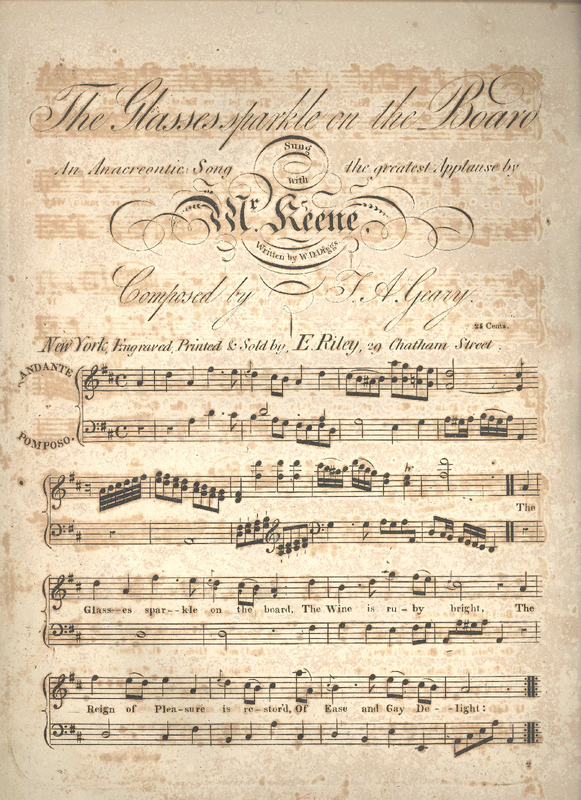 The Glasses sparkle on the Board
Sung
An Anacreontic Song with the greatest Applause by
Mr. Keene.
Written by W.D. Diggs.
Composed by T. A. Geary.
25 Cents.
New York, Engraved, Printed & Sold by, E. Riley, 29 Chatham Street
ANDANTE
POMPOSO.
The
Glass-es spar--kle on the board, The Wine is ru-by bright, The
Reign of Plea-sure is re-stor'd, Of Ease and Gay De--light: